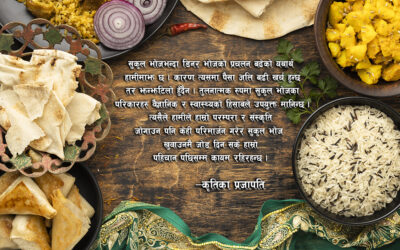 सुकुल भोजभन्दा डिनर भोजको प्रचलन बढेको यथार्थ
हामीमाझ छ । कारण त्यसमा पैसा अलि बढी खर्च हुन्छ
तर झन्झटिलो हुँदैन । तुलनात्मक रुपमा सुकुल भोजका
परिकारहरु वैज्ञानिक र स्वास्थ्यको हिसाबले उपयुक्त मानिन्छ ।
त्यसैले हामीले हाम्रो परम्परा र संस्कृति
जोगाउन पनि केही परिमार्जन गरेर सुकुल भोज
खुवाउनमै जोड दिन सके हाम्रो
पहिचान पछिसम्म कायम रहिरहन्छ ।
–कृतिका प्रजापति